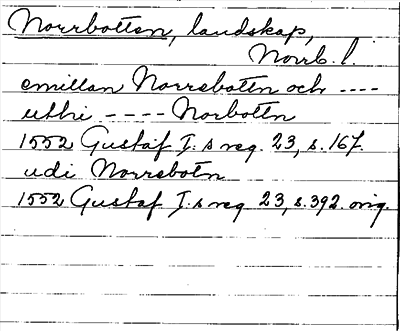 Norrbotten, landskap,
Norrb. l.
emillan Norrebotn och ----
uthi ---- Norbotn
1552 Gustaf I:s reg. 23, s. 167.
udi Norrebotn
1552 Gustaf I:s reg. 23, s. 392. orig.